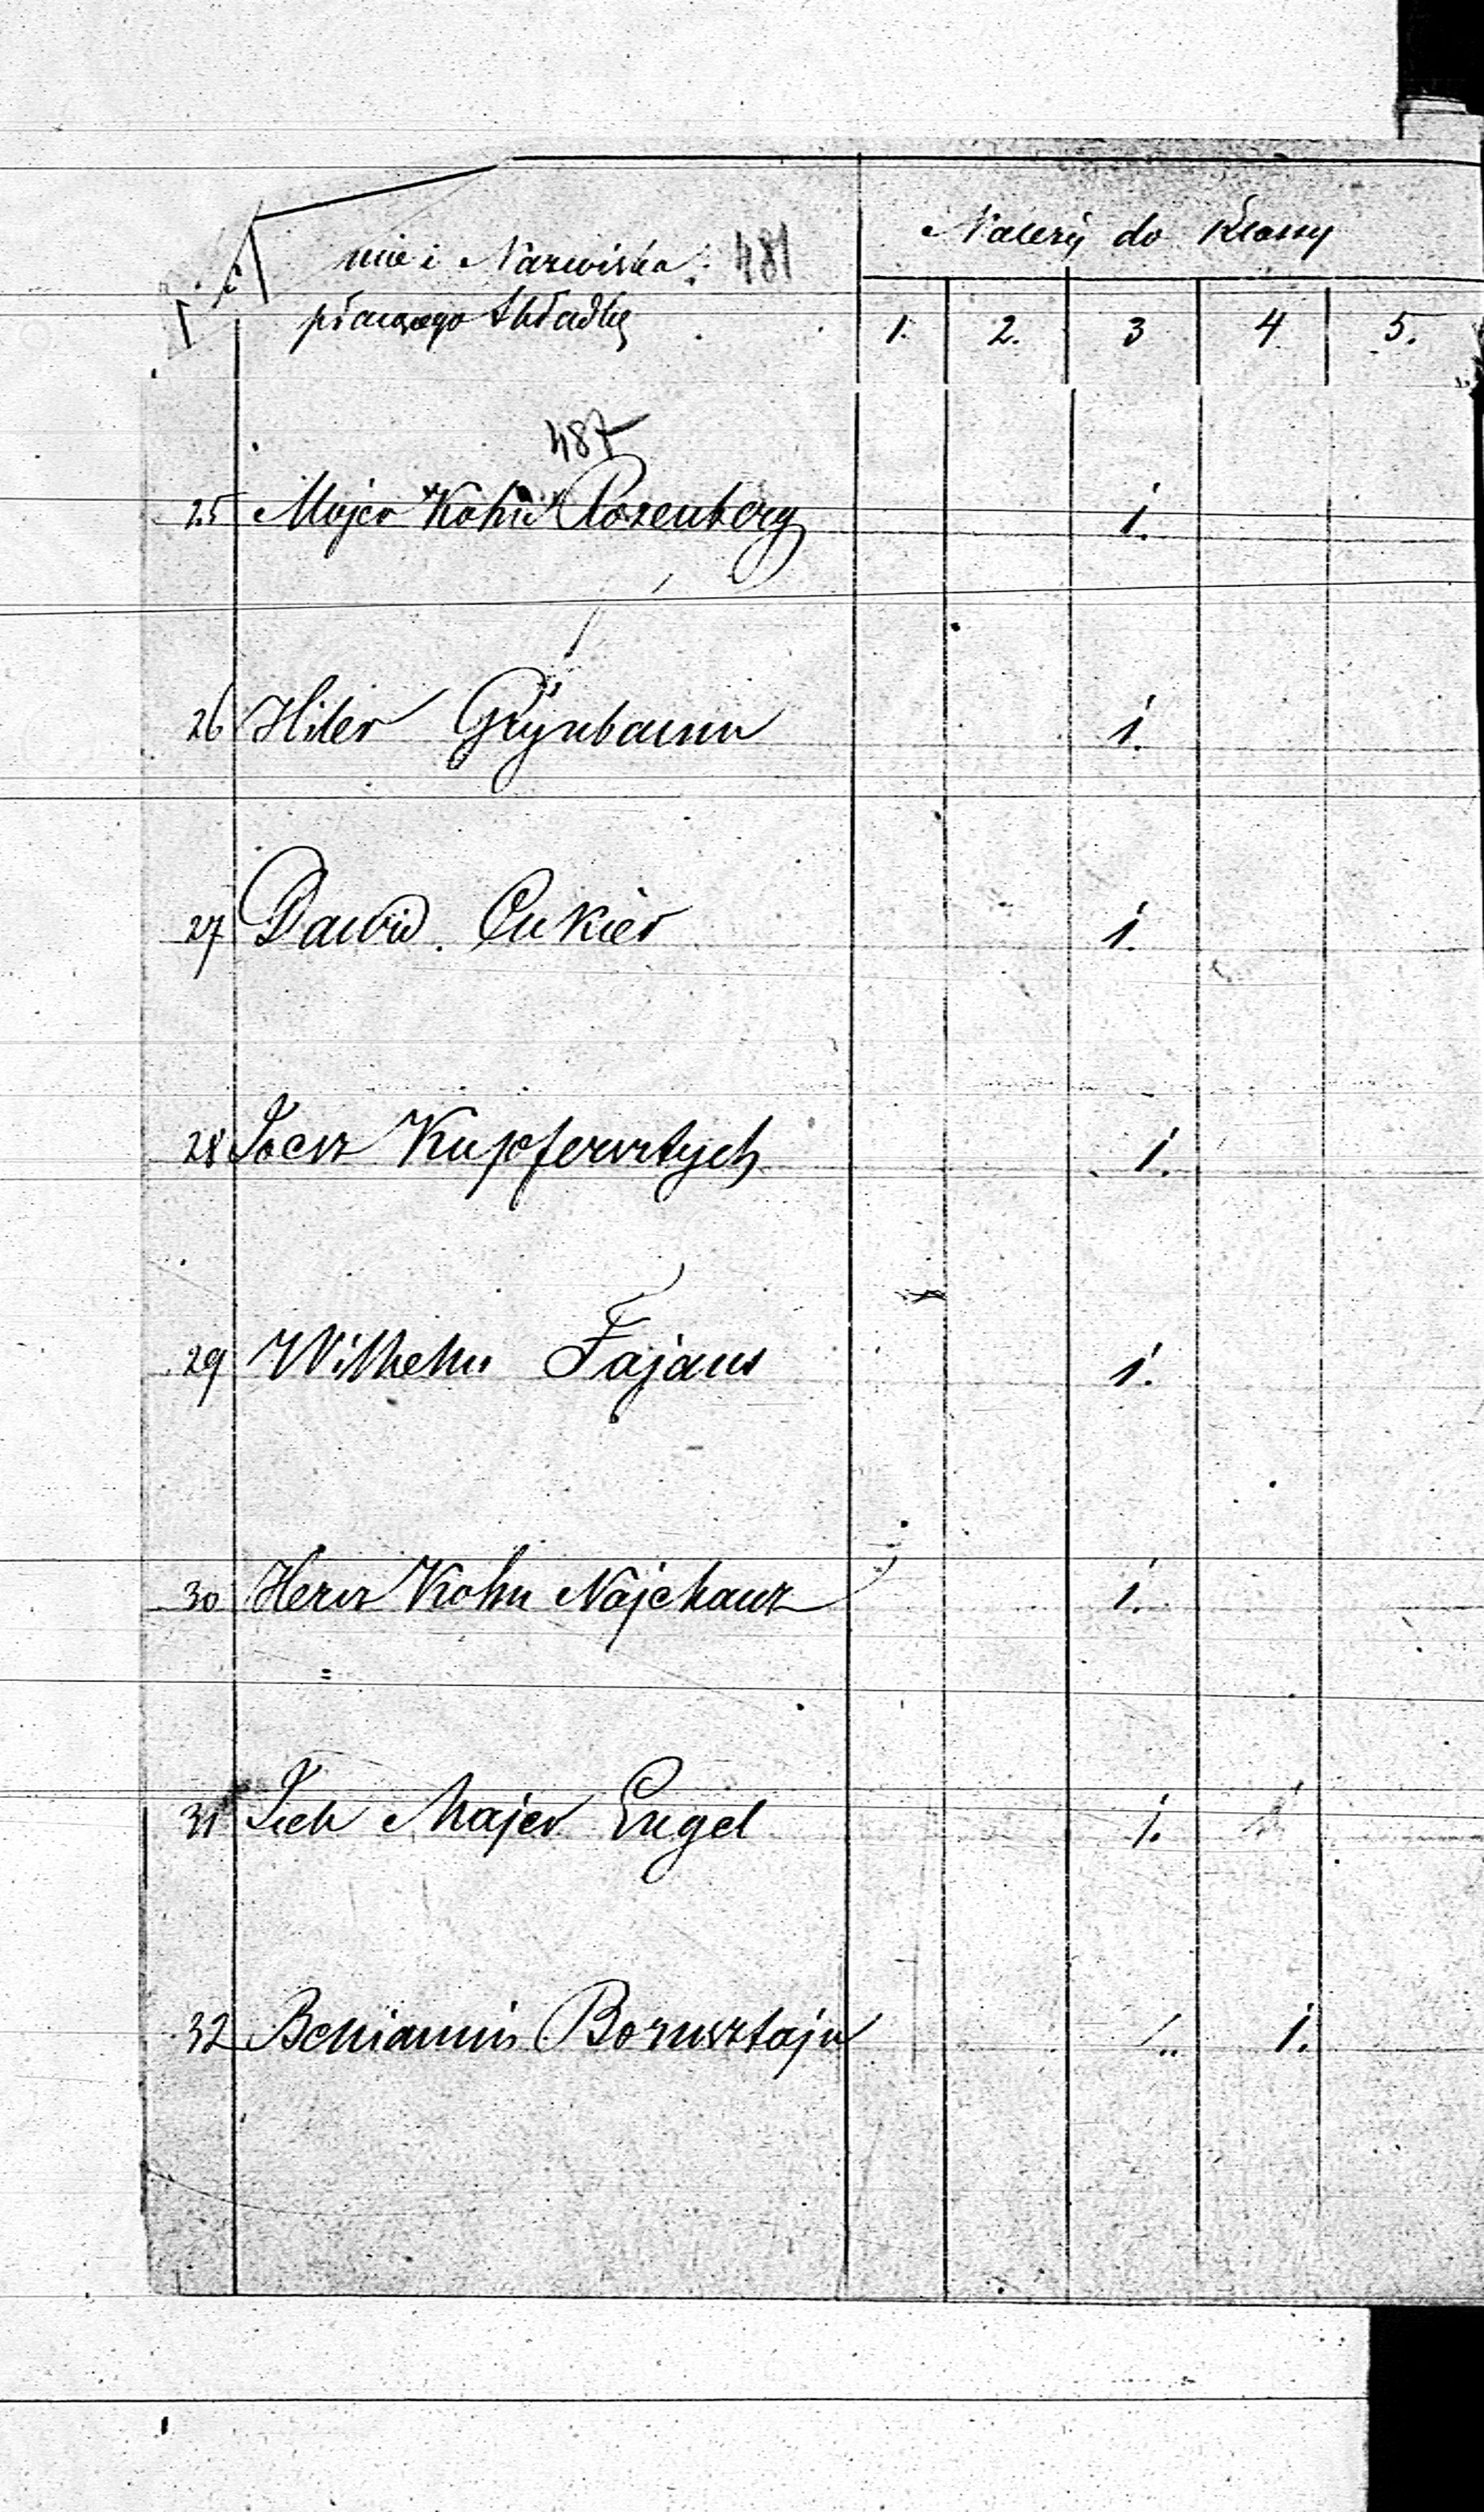 mie i Nazwiska 481
płacącego Składkę
Należy do Klassy
1. 2. 3 4 5.
487
25 Majer Kohn Rozenberg 1.
26 Hiler Grynbaum 1.
27 Dawid Cukier 1.
28 Josek Kupfersztych 1.
29 Wilhelm Fajans 1.
30 Hersz Kohn Najchauz 1.
31 Icek Majer Engel 1. 1
32 Beniamin Bornsztajn 1.. 1.